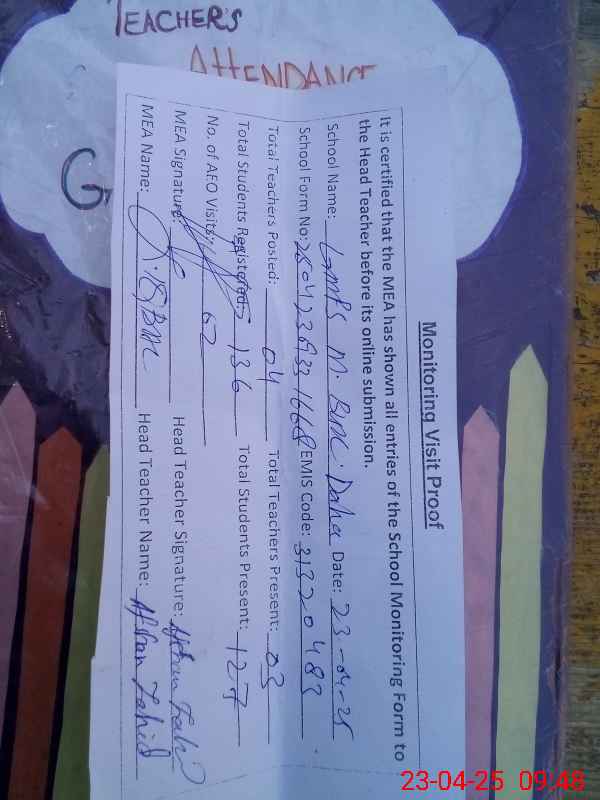 TEACHER'S
ATTENDANCE
G
Monitoring Visit Proof
It is certified that the MEA has shown all entries of the School Monitoring Form to
the Head Teacher before its online submission.
School Name: GMPS M. Date: 23-04-25
School Form No: EMIS Code: 31320483
Total Teachers Posted: 04 Total Teachers Present: 03
Total Students Registered: 136 Total Students Present: 127
No. of AEO Visits: 02
MEA Signature: Head Teacher Signature:
MEA Name: Head Teacher Name: Zahid
23-04-25 09:48